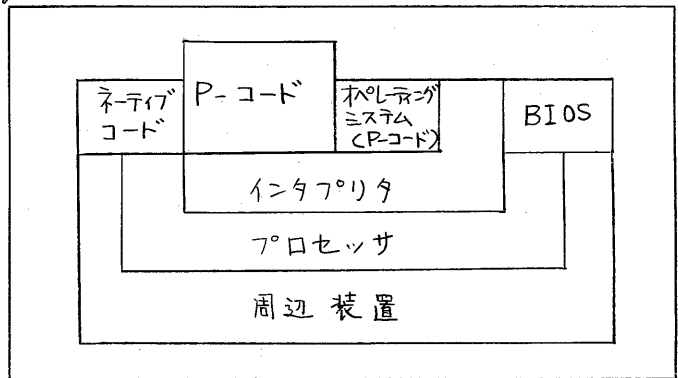 ネーティブ
コード
P-コード
オペレーティング
システム
(P-コード)
BIOS
インタプリタ
プロセッサ
周辺装置